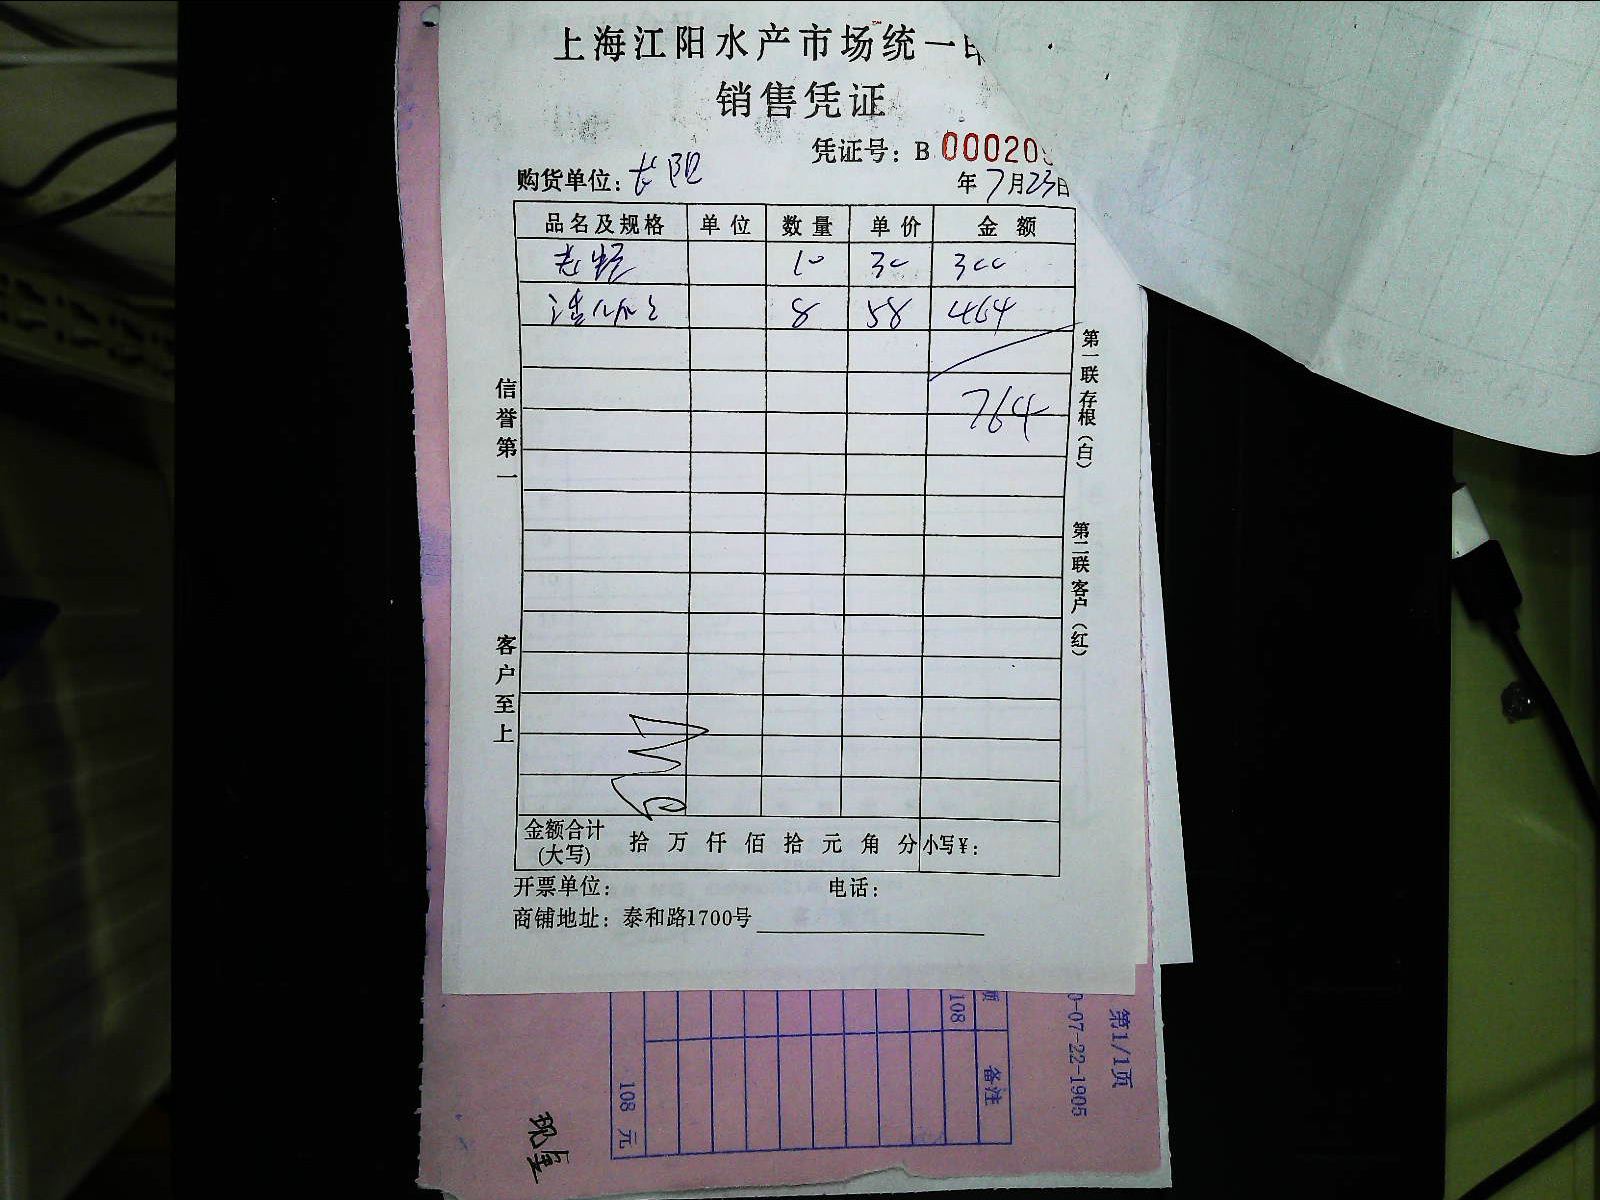 上海江阳水产市场统一印
销售凭证
凭证号：B 00020
购货单位：长阳
年 7月23日
品名及规格 单位 数量 单价 金额
10 30 300
8 58 464
764
信誉第一
客户至上
第一联存根（白）
第二联客户（红）
金额合计（大写） 拾 万 仟 佰 拾 元 角 分 小写￥：
开票单位： 电话：
商铺地址：泰和路1700号
第1/1页
0-07-22-1905
额 备注
108
108 元
现金